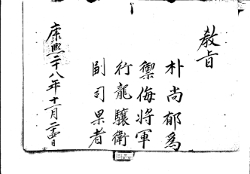 教旨
朴尚郁爲
禦侮將軍
行龍驤衛
副司果者
康熙二十八年十二月二十日